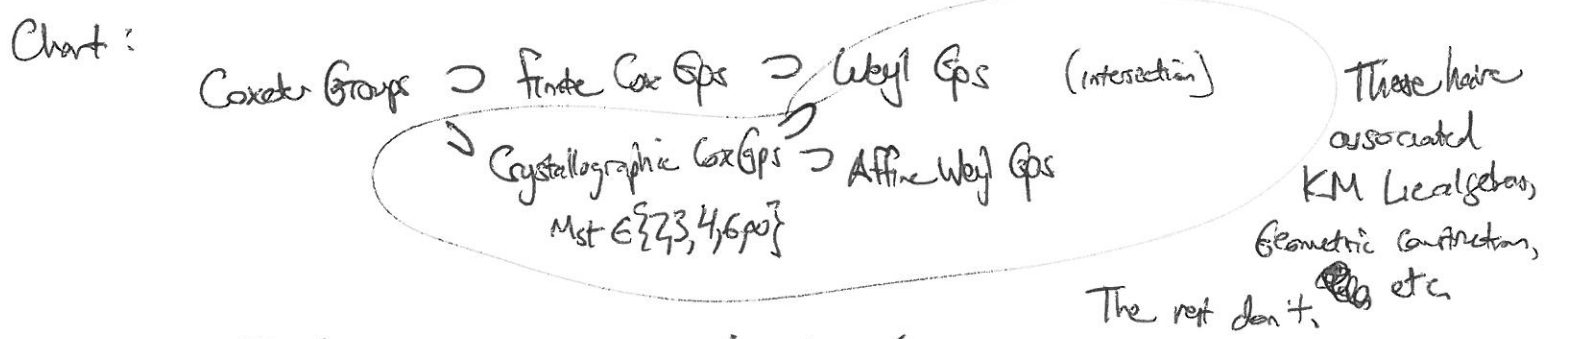 Chart:
Coxeter Groups ⊃ Finite Cox Gps ⊃ Weyl Gps (intersection)
⊃ Crystallographic Cox Gps ⊃ ⊃ Affine Weyl Gps
Mst ∈ {2,3,4,6,∞}
These have
associated
KM Lie algebras,
Geometric constructions,
etc.
The rest don't.